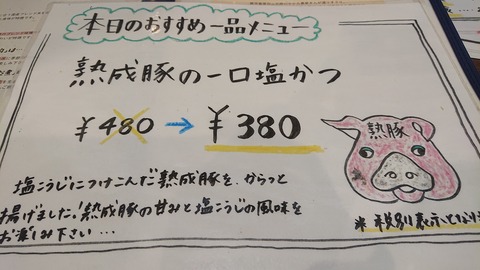 本日のおすすめ一品メニュー
熟成豚の一口塩かつ
¥480→¥380
熟豚
塩こうじにつけこんだ熟成豚を、からっと
揚げました!熟成豚の甘みと塩こうじの風味を
お楽しみ下さい…
※税別表示となり